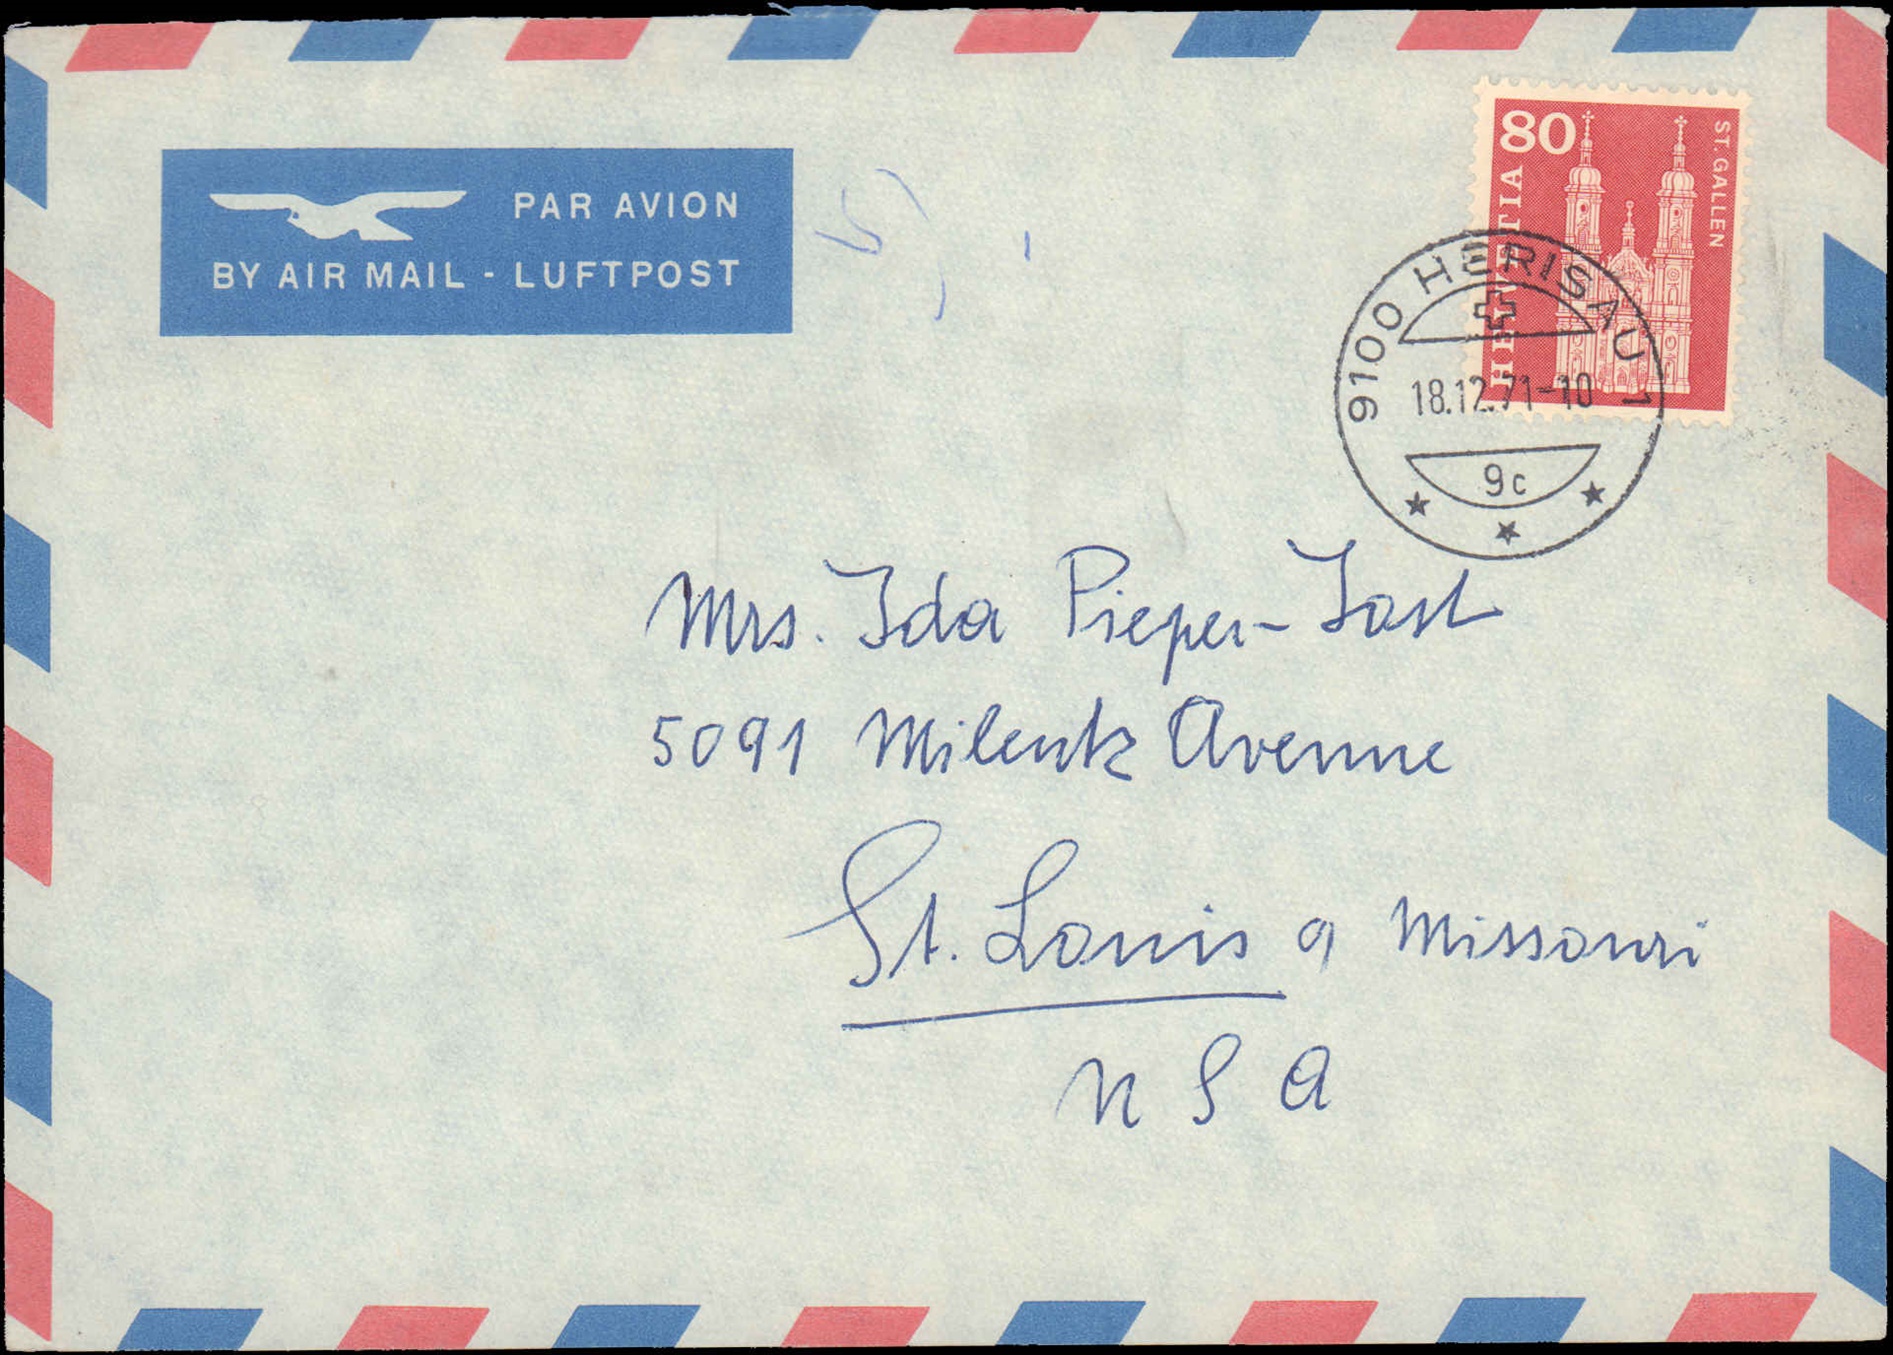 PAR AVION
BY AIR MAIL - LUFTPOST
80
HELVETIA
ST. GALLEN
9100 HERISAU 1
18.12.71-10
9c
Mrs. Ida Pieper-Jost
5091 Milentz Avenue
St. Louis 9 Missouri
USA